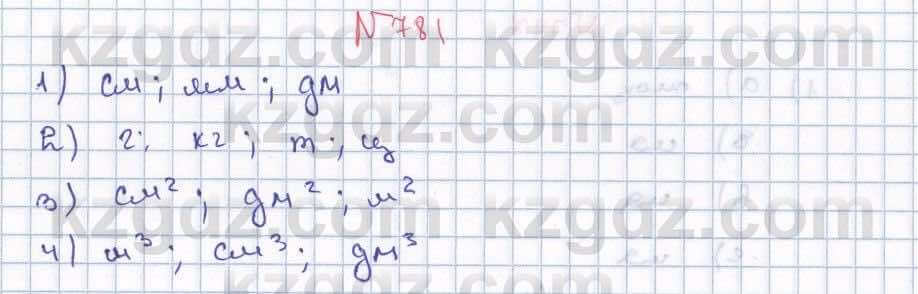 № 781
1) см; мм; дм
2) г; кг; т; ц
3) см²; дм²; м²
4) м³; см³; дм³
kzgdz.com kzgdz.com
kzgdz.com
kzgdz.com kzgdz.com
kzgdz.com